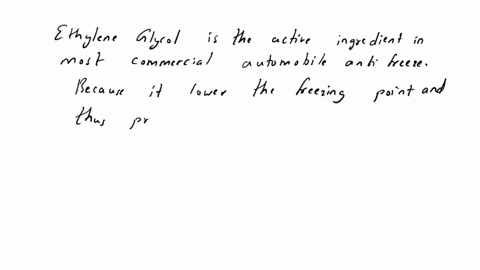 Ethylene Glycol is the active ingredient in
most commercial automobile anti freeze.
Because it lower the freezing point and
thus pr